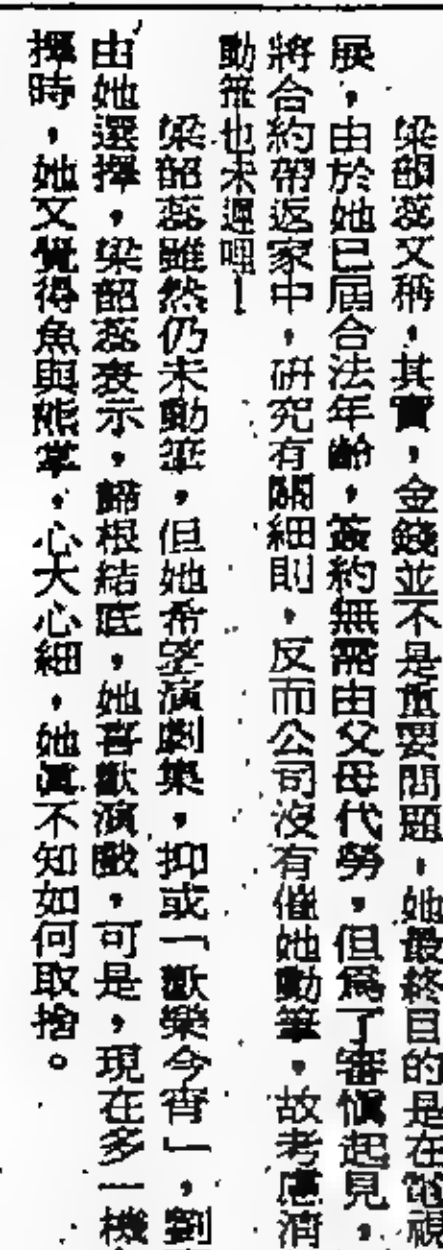 梁韶蕊又稱，其實，金錢並不是重要問題，她最終目的是在電視
展，由於她已屆合法年齡，簽約無需由父母代勞，但爲了審慎起見，
將合約帶返家中，研究有關細則，反而公司沒有催她動筆，故考慮清
動筆也未遲哩！
梁韶蕊雖然仍未動筆，但她希望演劇集，抑或「歡樂今宵」，劉
由她選擇，梁韶蕊表示，歸根結底，她喜歡演戲，可是，現在多一機
擇時，她又覺得魚與熊掌，心大心細，她眞不知如何取捨。